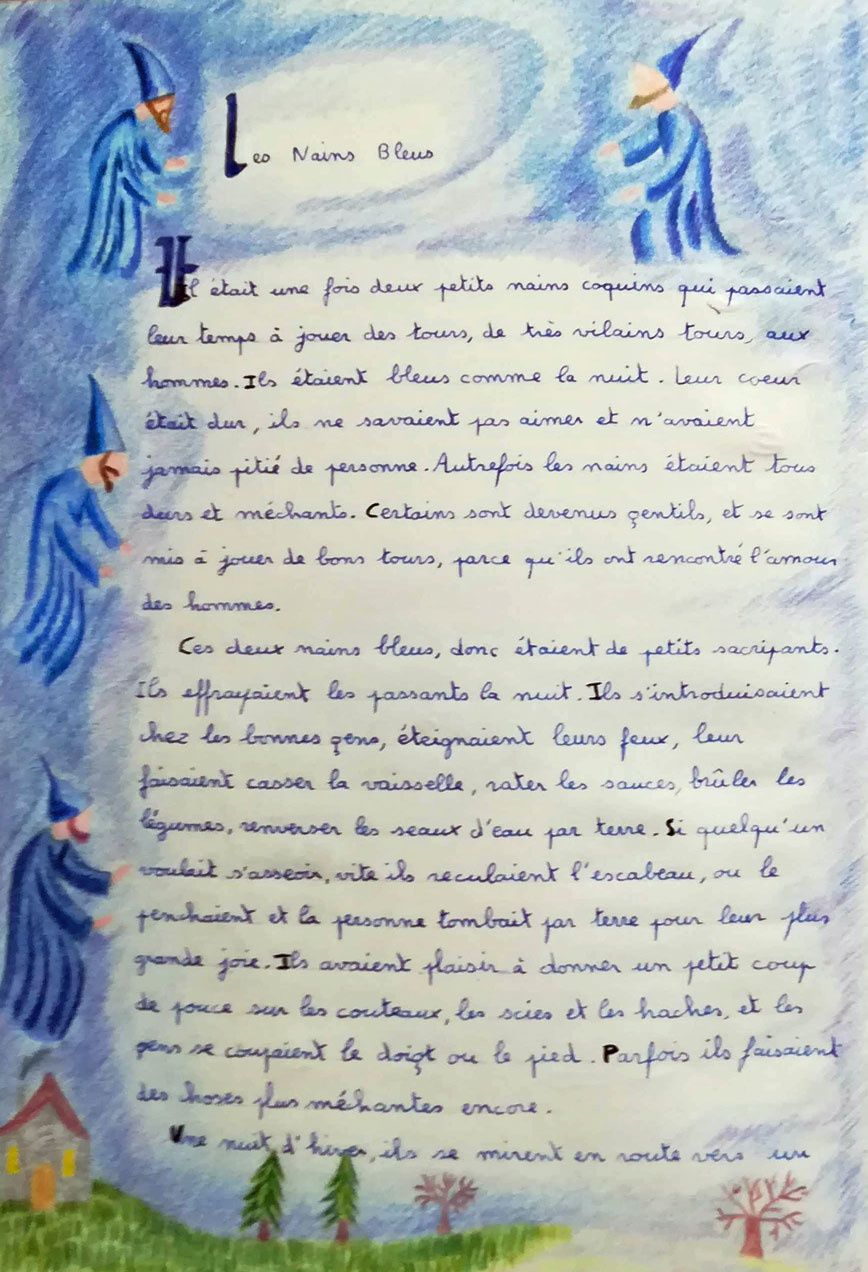 Les Nains Bleus
Il était une fois deux petits nains coquins qui passaient
leur temps à jouer des tours, de très vilains tours, aux
hommes. Ils étaient bleus comme la nuit. Leur coeur
était dur, ils ne savaient pas aimer et n'avaient
jamais pitié de personne. Autrefois les nains étaient tous
durs et méchants. Certains sont devenus gentils, et se sont
mis à jouer de bons tours, parce qu'ils ont rencontré l'amour
des hommes.
Ces deux nains bleus, donc étaient de petits sacripants.
Ils effrayaient les passants la nuit. Ils s'introduisaient
chez les bonnes gens, éteignaient leurs feux, leur
faisaient casser la vaisselle, rater les sauces, brûler les
légumes, renverser les seaux d'eau par terre. Si quelqu'un
voulait s'asseoir, vite ils reculaient l'escabeau, ou le
penchaient et la personne tombait par terre pour leur plus
grande joie. Ils avaient plaisir à donner un petit coup
de pouce sur les couteaux, les scies et les haches, et les
gens se coupaient le doigt ou le pied. Parfois ils faisaient
des hoses plus méchantes encore.
Une nuit d'hiver, ils se mirent en route vers un